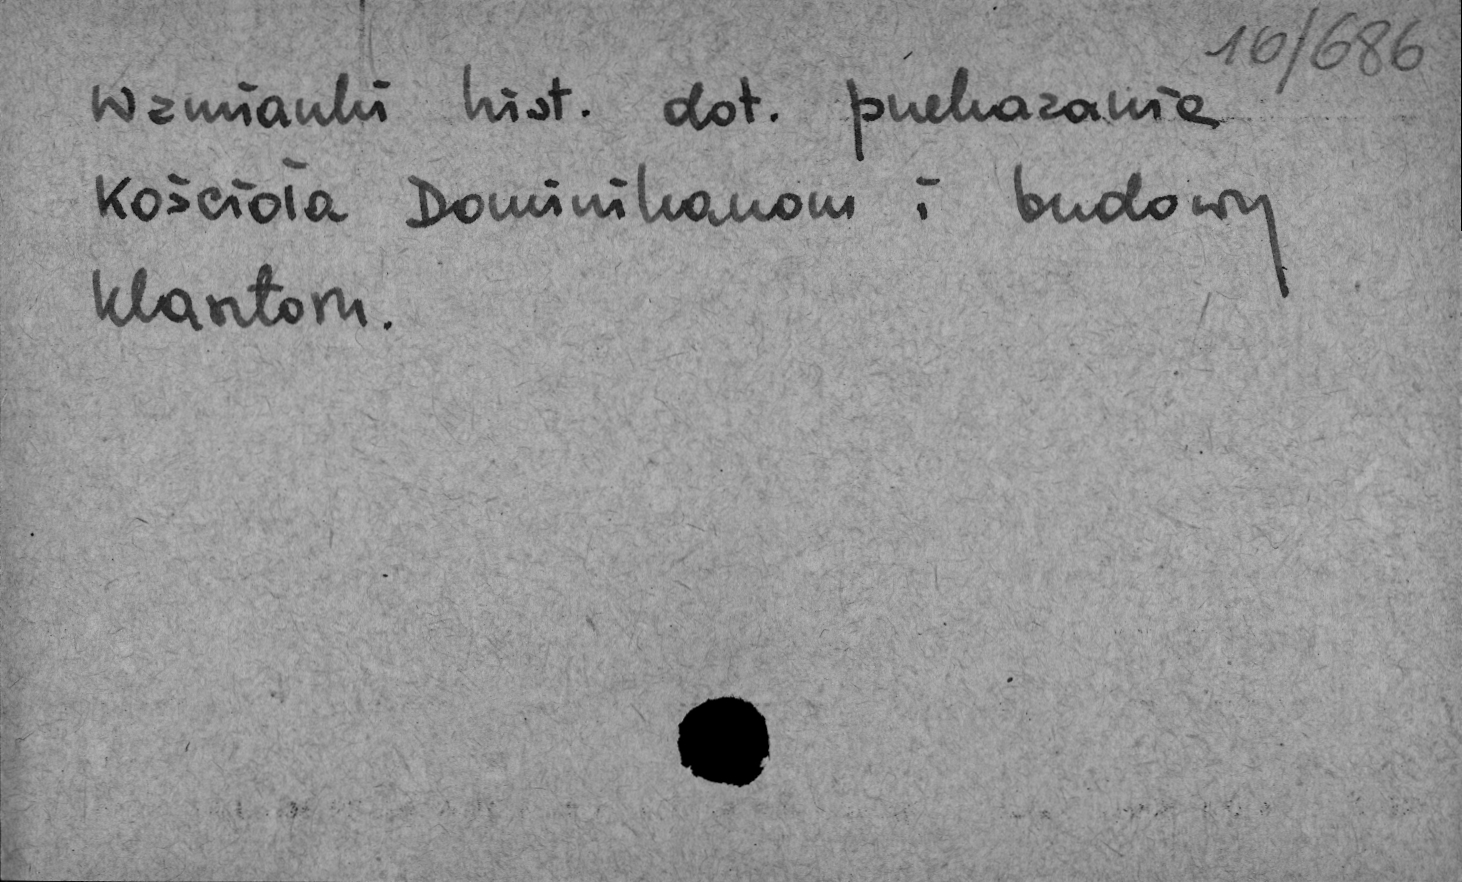 16/686
Wzmianki hist. dot. przekazania
Kościoła Dominikanom i budowy
klasztoru.